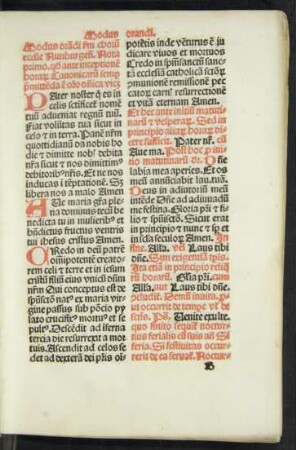 Modus orandi.
Modus orādi ſm chorū
eccl̄ie Numburgeñ. Nota
primo. qͥ ante inceptionē
horarꝫ Canonicarū semp
Pater noster qͥ es in
celis sctificet̄ nomē
tuū adueniat regnū tuū.
Fiat volūtas tua sicut in
celo ⁊ in terra. Panē nr̄m
quotidianū da nobis ho
die ⁊ dimitte nobꝰ debita
nr̄a sicut ⁊ nos dimittimꝰ
debitoribꝰ nr̄is. Et ne nos
inducas ī tēptationē. Sꝫ
libera nos a malo Amen
Aue maria gr̄a ple
na dominus tecū be
nedicta tu in mulieribꝰ ⁊
bn̄dictus fructus ventris
tui ihesus cristus Amen.
Credo in deū patrē
omnipotentē creato
rem celi ⁊ terre et in iesum
cristū filiū eius vnicū dūm
nr̄m Qui conceptus est de
spūsctō natꝰ ex maria virgine
passus sub pōcio py
lato crucifixꝰ mortuꝰ et se
pulꝰ. Descēdit ad iferna
tercia die resurrexit a mor
tuis. Ascendit ad celos se
det ad dexterā dei pr̄is oī
potētis inde vēturus ē iu
dicare viuos et mortuos
Credo in spm̄sanctū sanc
ta ecclesiā catholicā sctōꝝ
cōmunionē remissionē pec
catorꝫ carnis resurrectionē
et vitā eternam Amen.
Et hec ante initiū matutinarū
⁊ vesperarꝫ. Sed in
principio aliarꝫ horarꝫ
dicere sufficit. Pater nr̄.
Aue ma. Post hoc prīcipio
matutinarū Dn̄e
labia mea aperies. Et os
meū annūciabit laudē tuā.
Deus in adiutoriū meū
intēde Dn̄e ad adiuuādū
me festina. Gloria pr̄i ⁊ filio
⁊ spūisctō. Sicut erat
in principio ⁊ nunc ⁊ sp̄ et
in scl̄a seculorꝫ Amen.
Alla. vel Laus tibi
dn̄e. Scd̄m exigentiā tp̄is.
Ita etiā in principio reliquarū
horarū. Gl̄ia pr̄i. cum
Alla. aut Laus tibi dn̄e.
Venite exulte.
quo finito sequitꝰ noctur
nus ferialis
feria. Si festiuitas occur
rerit Noctur-
B